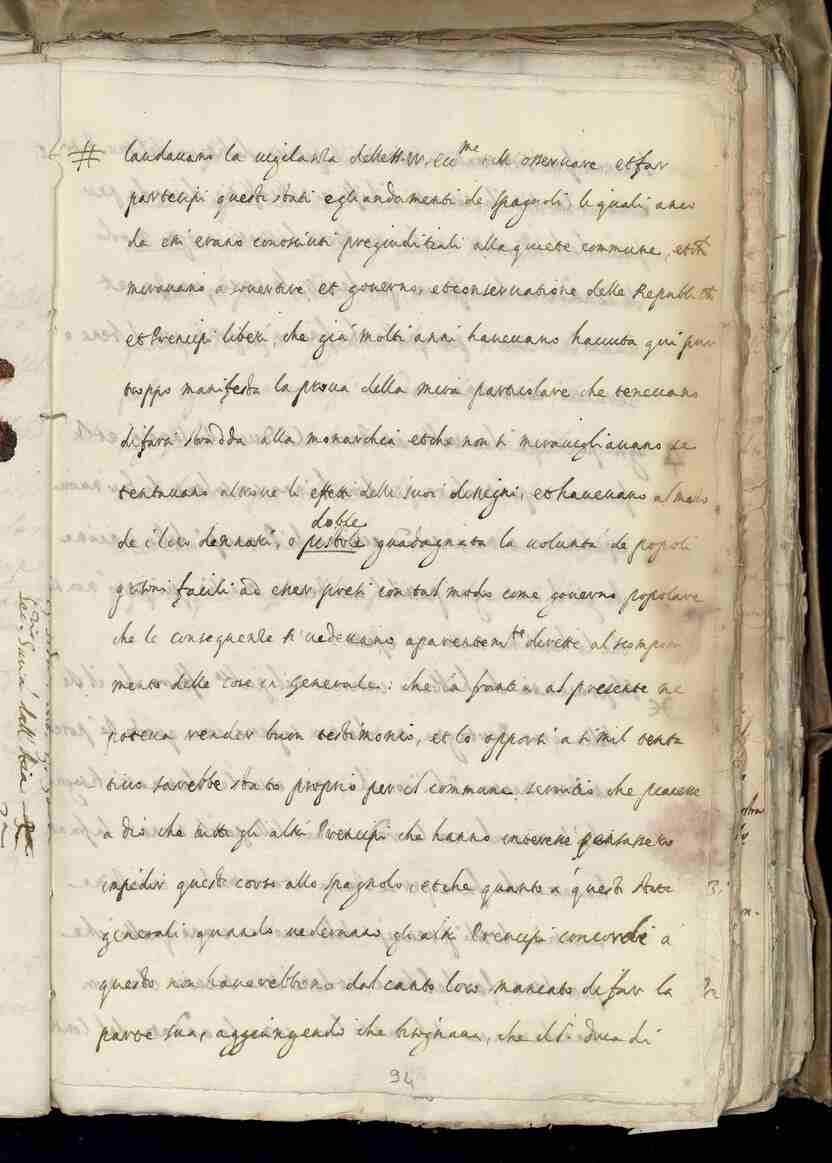 # laudauano la uigilanza delle SS. VV. Ecc.me di osseruare et far
partecipi questi stati egli andamenti de spagnoli, li quali anco
da essi erano conosciuti pregiuditiali alla quiete commune, et ch'
mirauano a souertire et gouerno, et conseruatione delle Republiche
et Prencipi liberi, che già molti anni haueuano hauuta qui pur
troppo manifesta la proua della mira particolare che teneuano
di farsi stradda alla monarchia et che non si marauigliauano se
tentauano altroue li effetti delli suoi dissegni, et haueuano al mezo
de i loro dennari, o pistole guadagnata la uoluntà de popoli
doble
grisoni facili ad esser presi con tal modo come gouerno popolare
che le consequenze si uedeuano aparentem.te dirette al scompon
mento delle cose in generale: che la francia al presente ne
poteua render buon testimonio, et lo opporsi a simil tenta
tiuo sarebbe stato proprio per il commune seruitio che piacesse
a dio che tutti gli altri Prencipi che hanno interesse pensassero
impedir questo corso allo spagnolo, et che quanto a questi stati
generali quando uedessero gli altri Prencipi concordi à
questo non hauerebbono dal canto loro mancato di far la
parte sua, aggiungendo che bisognaua, che il S. Duca di
94